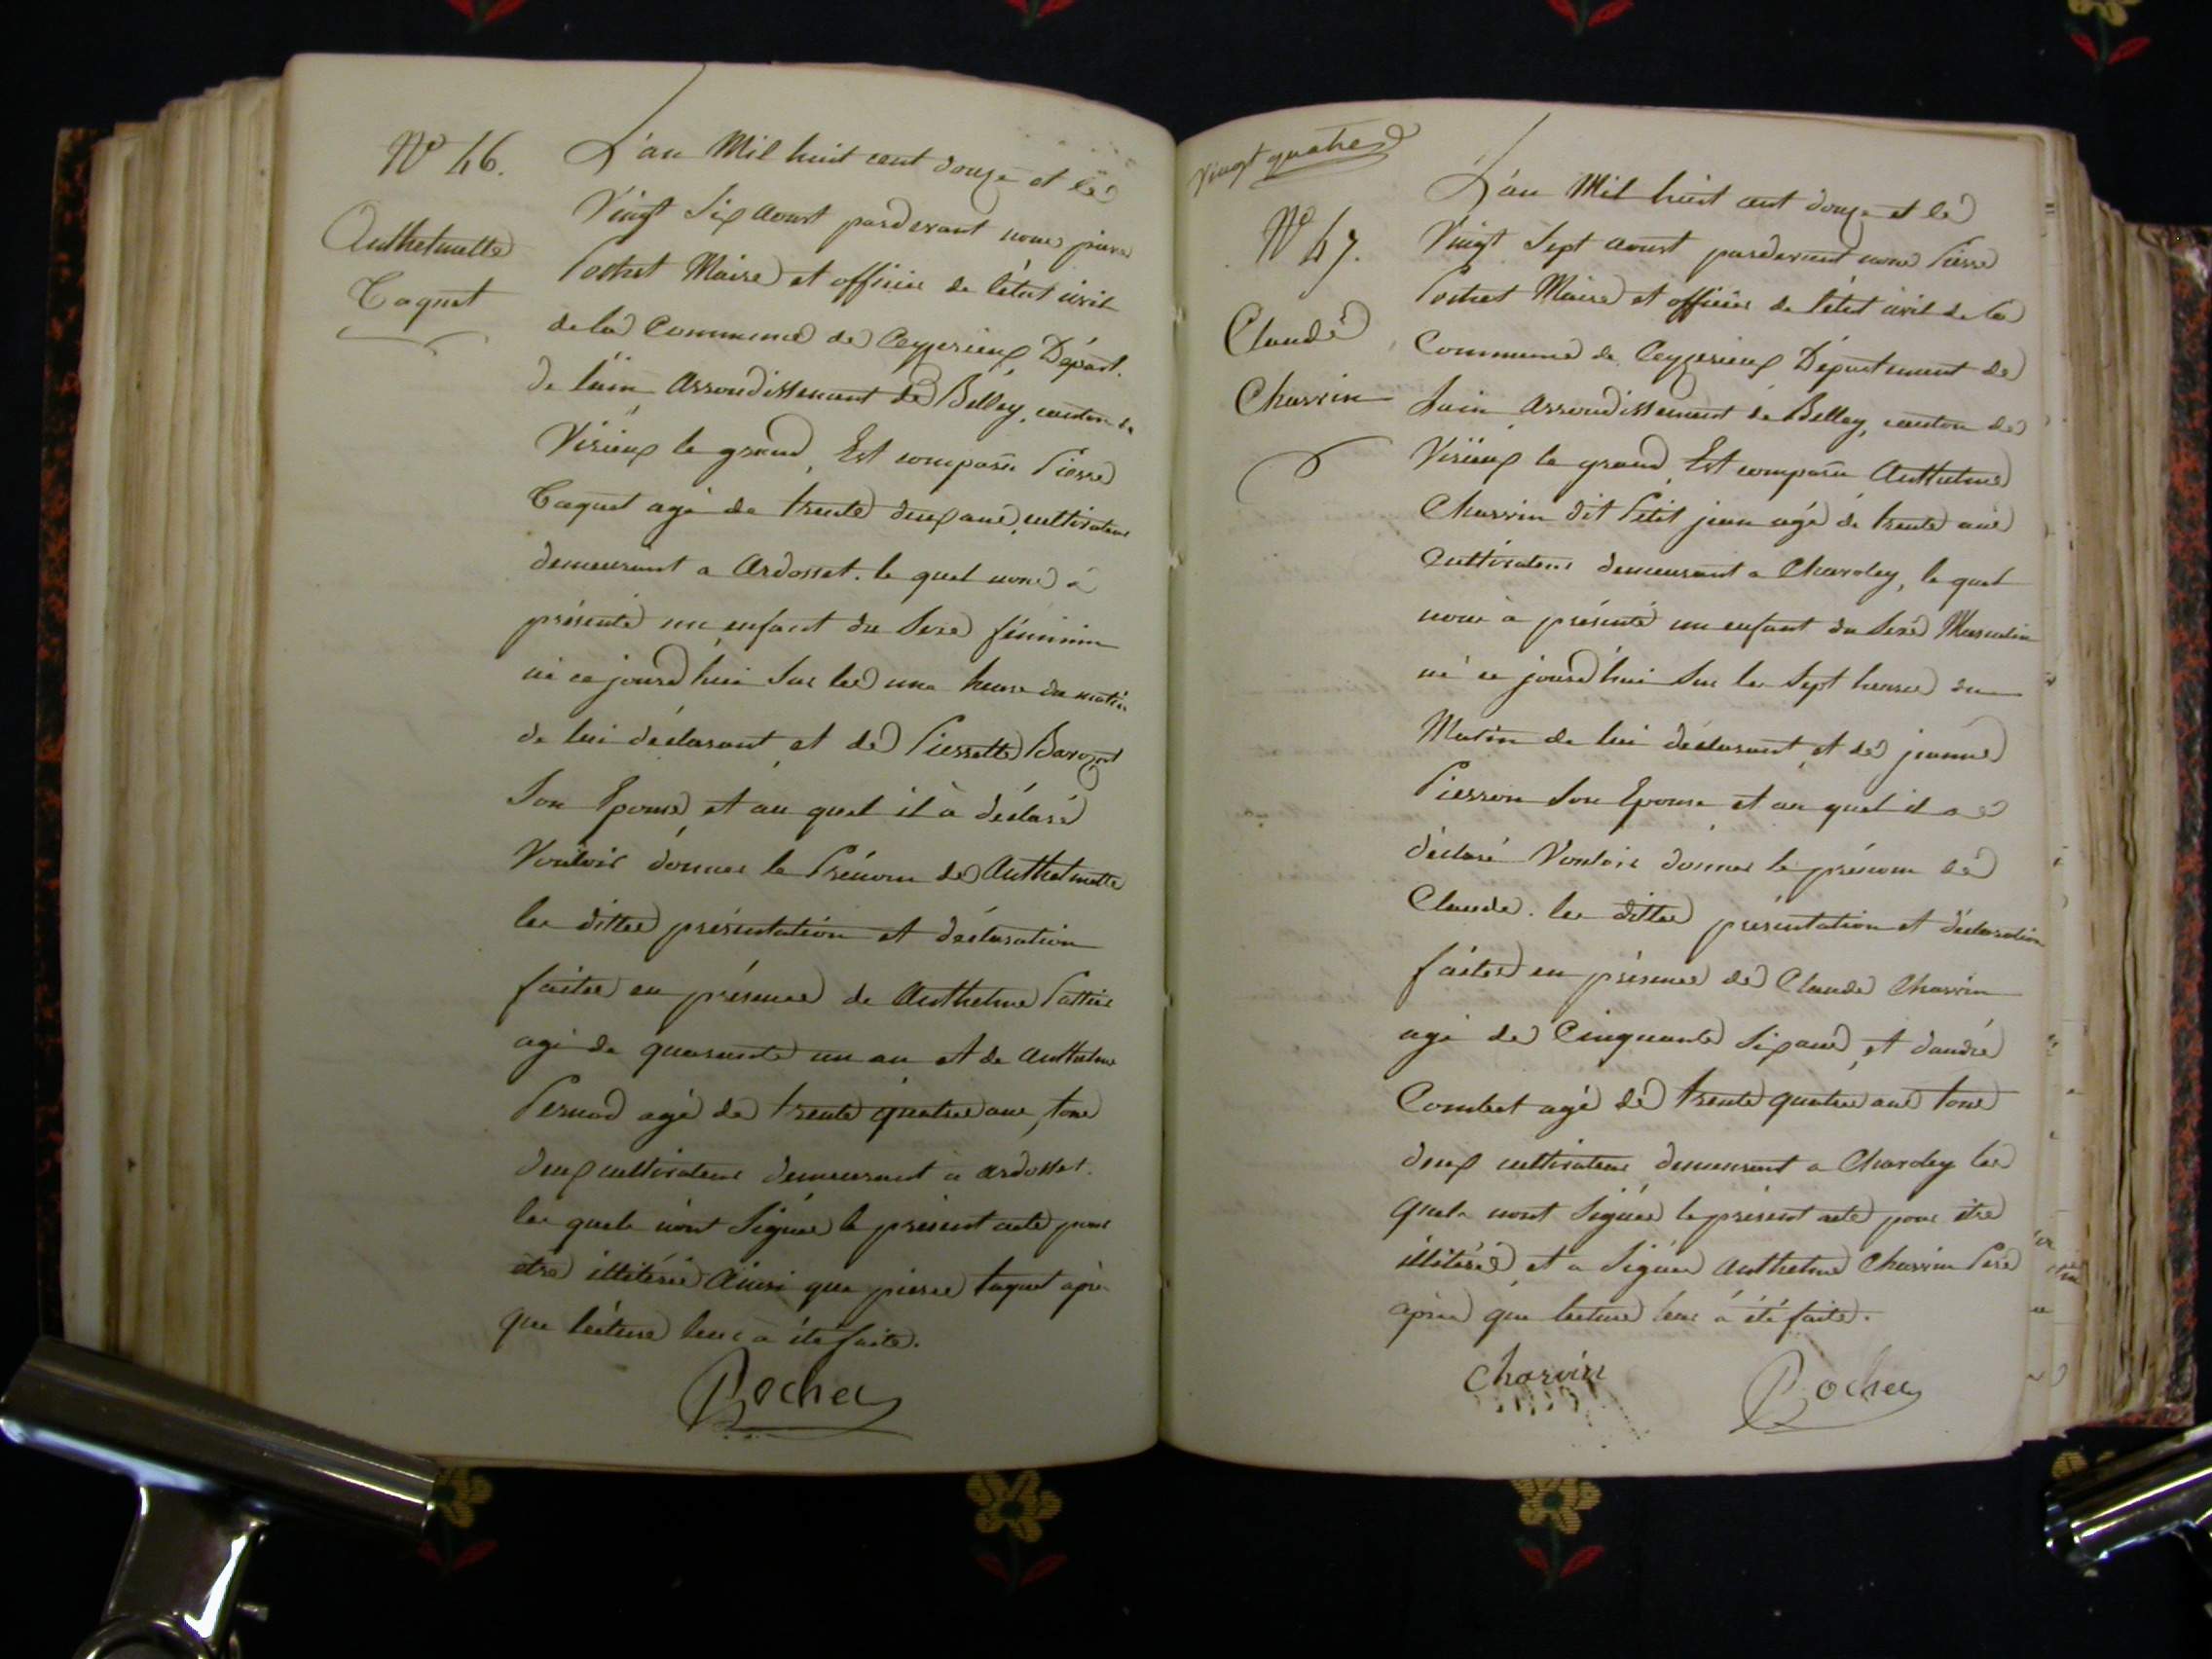 N° 46.
Anthelmette
Taquet
L'an Mil huit cent douze et le
Vingt Six aoust pardevant nous pierre
Pochet Maire et officier de l'état civil
de la Commune de Ceyzerieux Départ.
de l'ain arrondissement de Belley, canton de
Virieux le grand, Est comparu Pierre
Taquet agé de trente deux ans, cultivateur
demeurant a Ardosset. le quel nous à
présenté un enfant du Sexe féminin
né ce jourd'hui Sur les une heure du matin
de lui déclarant, et de Pierrette
Son Epouse, et au quel il à déclaré
Vouloir donner le Prénom de Anthelmette
les dittes présentation et déclaration
faites en présence de Anthelme Pattier
agé de quarante un an et de anthelme
Pernod agé de trente quatre ans, tous
deux cultivateurs demeurant à ardosset.
les quels n'ont Signés le présent acte pour
etre illitérés Ainsi que pierre taquet après
que lecture leur a été faite.
Pochet
Vingt quatre
N° 47.
Claude
Charvin
L'an Mil huit cent douze et le
Vingt Sept aoust pardevant nous Pierre
Pochet Maire et officier de l'état civil de la
Commune de Ceyzerieux Département de
lain arrondissement de Belley, canton de
Virieux le grand, Est comparu Anthelme
Charvin dit Petit jean agé de trente ans
Cultivateur demeurant a Charoley, le quel
nous à présenté un enfant du Sexe Masculin
né ce jourd'hui Sur les Sept heures du
Matin de lui déclarant, et de jeanne
Pierron Son Epouse et au quel il a
déclaré Vouloir donner le prénom de
Claude. les dittes présentation et déclaration
faites en présence de Claude Charvin
agé de Cinquante Six ans, et d'andré
Combet agé de trente quatre ans tous
deux cultivateurs demeurant a Charoley les
quels n'ont Signés le présent acte pour etre
illitérés, et a Signé Anthelme Charvin Pere
après que lecture leur à été faite.
Charvin
Pochet